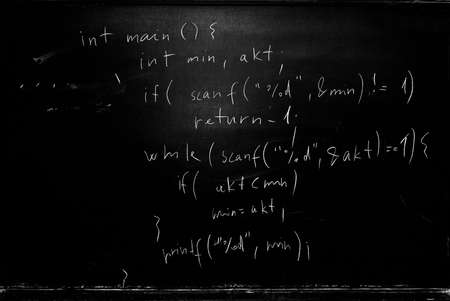 int main () {
int min, akt;
if( scanf("%d", &min) != 1)
return -1;
while (scanf("%d", &akt)==1) {
if( akt<min)
min=akt;
}
printf("%d", min);
}